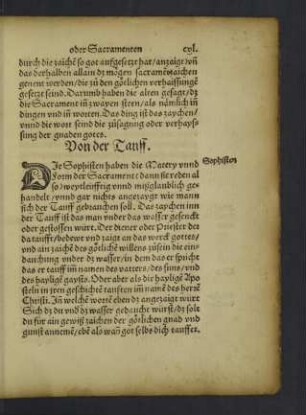 oder Sacramenten cxl.
durch die zaichẽ so got auffgesetzt hat / anzaige / vñ
das derhalben allain dz mögen sacramẽtzaichen
genent werden / die zů den götlichen verhaissungẽ
gesetzt seind. Darumb haben die alten gesagt / dz
die Sacrament iñ zwayen steen / als nämlich in
dingen vnd iñ worten. Das ding ist das zaychen /
vnnd die wort seind die zůsagung oder verhays-
sung der gnaden gottes.
Von der Tauff.
DIe Sophisten haben die Matery vnnd Sophisten
Form der Sacrament / dann sie reden al
so / weytleüffig vnnd mißglaublich ge-
handelt / vnnd gar nichts angezaygt wie mann
sich der Tauff gebrauchen soll. Das zaychen inn
der Tauff ist das man vnder das wasser gesenckt
oder gestossen würt. Der diener oder Priester der
da taufft / bedewt vnd zaigt an das werck gottes /
vnd ain zaichẽ des götlichẽ willens / so er die ein-
dauchung vnder dz wasser / in dem das er spricht
das er tauff iñ namen des vatters / des suns / vnd
des hayligẽ gaysts. Oder aber als die haylige Apo
steln in jren geschichtẽ taufften iñ namẽ des herrẽ
Christi. In welchẽ wortẽ eben dz angezaigt würt
Sich dz du vnd dz wasser gedaucht würst / dz solt
du für ain gewiß zaichen der götlichen gnad vnd
gunst annemẽ / ebẽ als wañ got selbs dich tauffet.